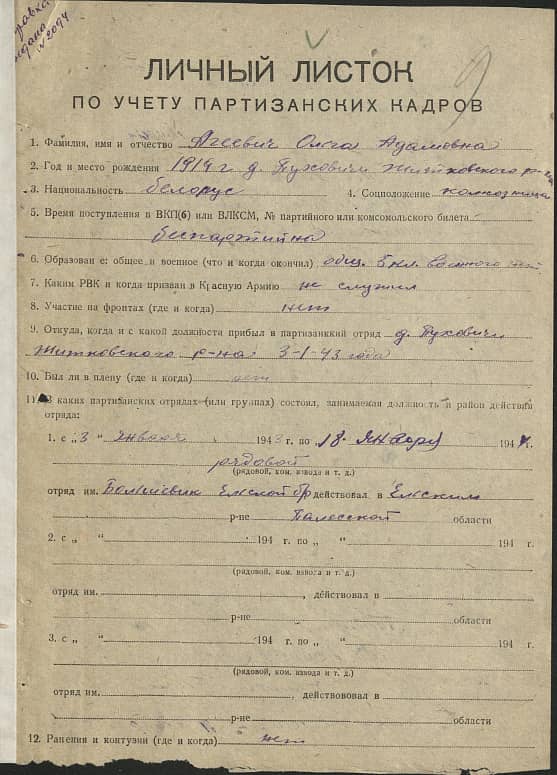 справка
выдана
№2094
9
ЛИЧНЫЙ ЛИСТОК
ПО УЧЕТУ ПАРТИЗАНСКИХ КАДРОВ
1. Фамилия, имя и отчество Агеевич Ольга Адамовна
2. Год и место рождения 1919 г д. Пуховичи Житковского р-на
3. Национальность белорус 4. Соцположение колхозница
5. Время поступления в ВКП(б) или ВЛКСМ, № партийного или комсомольского билета
беспартийна
6. Образован е: общее и военное (что и когда окончил) общ. 5 кл. военного нет
7. Каким РВК и когда призван в Красную Армию не служил
8. Участие на фронтах (где и когда) нет
9. Откуда, когда и с какой должности прибыл в партизанкий отряд д. Пуховичи
Житковского р-на 3-1-43 года
10. Был ли в плену (где и когда) нет
11. В каких партизанских отрядах (или группах) состоял, занимаемая должность и район действий
отряда:
1. с „3" января 1943 г. по „18" января 1944 г.
рядовой
(рядовой, ком. взвода и т. д.)
отряд им. Большевик Ельской бр действовал в Ельским
р-не Палесской области
2. с „ " 194 г. по „ " 194 г
(рядовой, ком. взвода и т. д.)
отряд им. , действовал в
р-не области
3. с „ " 194 г. по „ " 194 г.
(рядовой, ком. взвода и т. д.)
отряд им. , действововал в
р-не области
12. Ранения и контузии (где и когда) нет